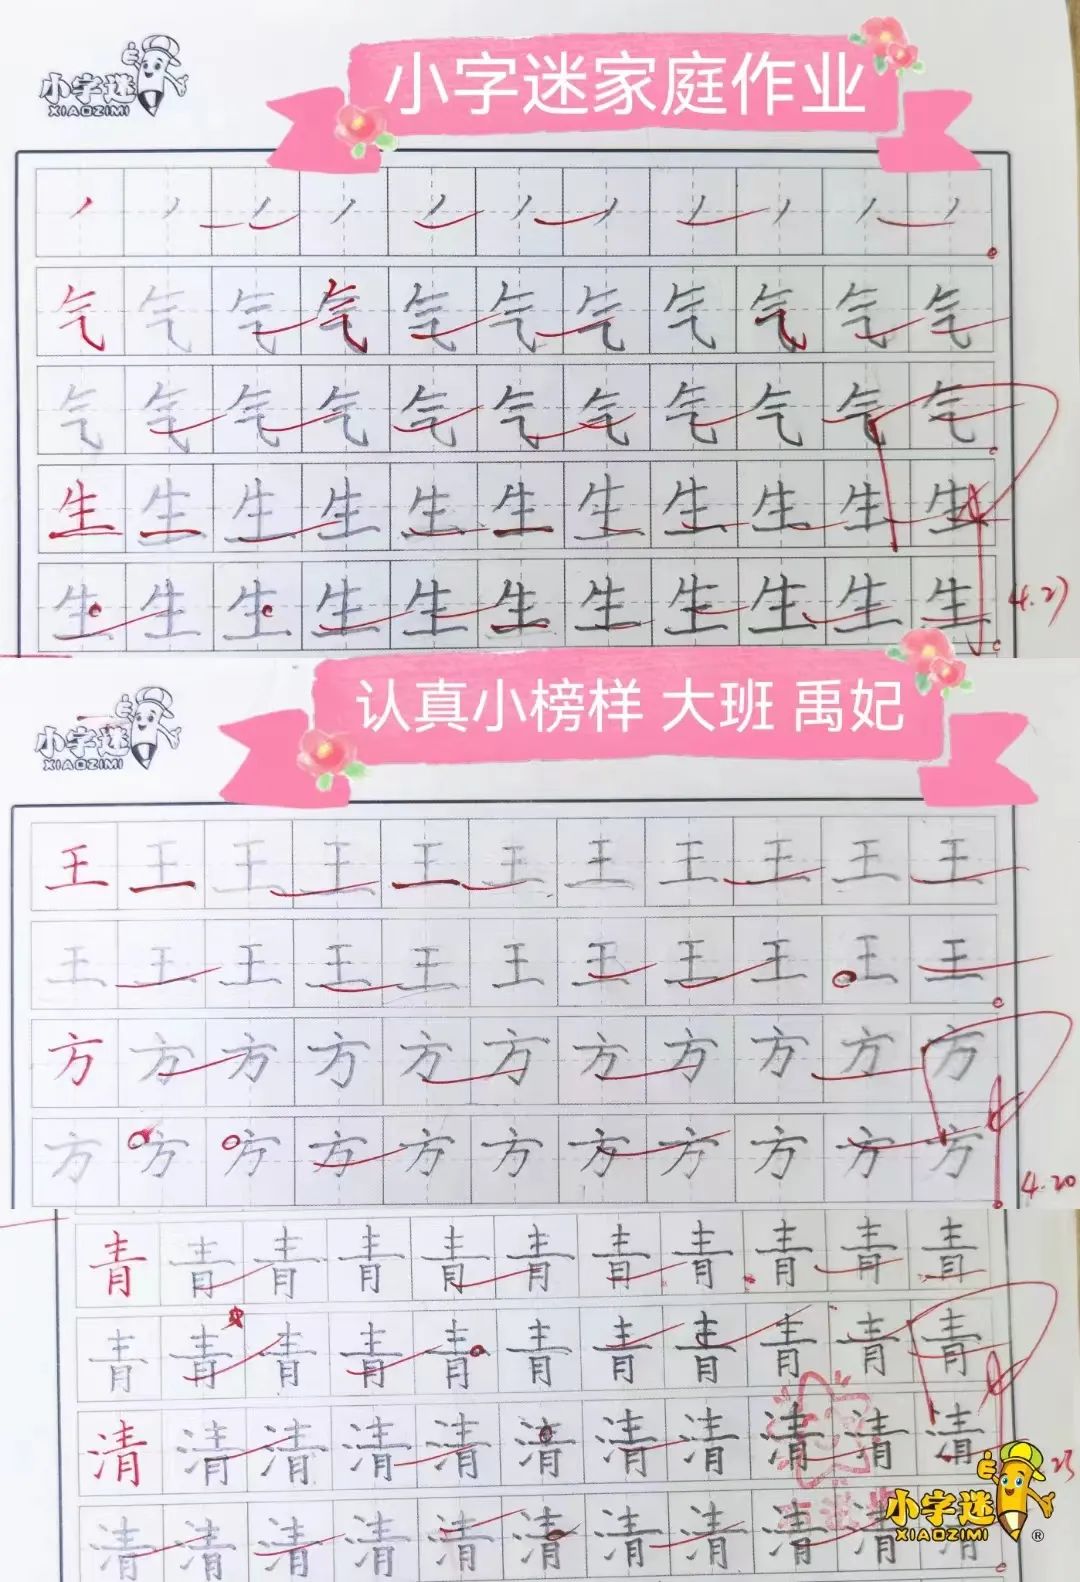 小字迷
XIAOZIMI
小字迷家庭作业
丿丿丿丿丿丿丿丿丿丿丿
气气气气气气气气气气气
气气气气气气气气气气气
生生生生生生生生生生生
生生生生生生生生生生生
4.27
小字迷
XIAOZIMI
认真小榜样 大班 禹妃
王王王王王王王王王王王
王王王王王王王王王王王
方方方方方方方方方方方
方方方方方方方方方方方
4.20
青青青青青青青青青青青
青青青青青青青青青青青
清清清清清清清清清清清
清清清清清清清清清清清
小字迷
XIAOZIMI®